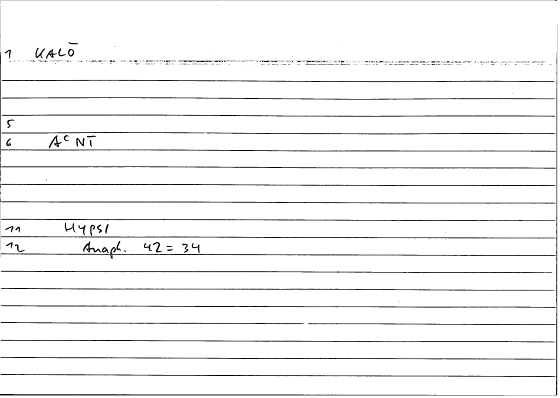 1 KALŌ
5
6 Aᶜ NT̄
11 Hypsi
12 Anaph. 42 = 34